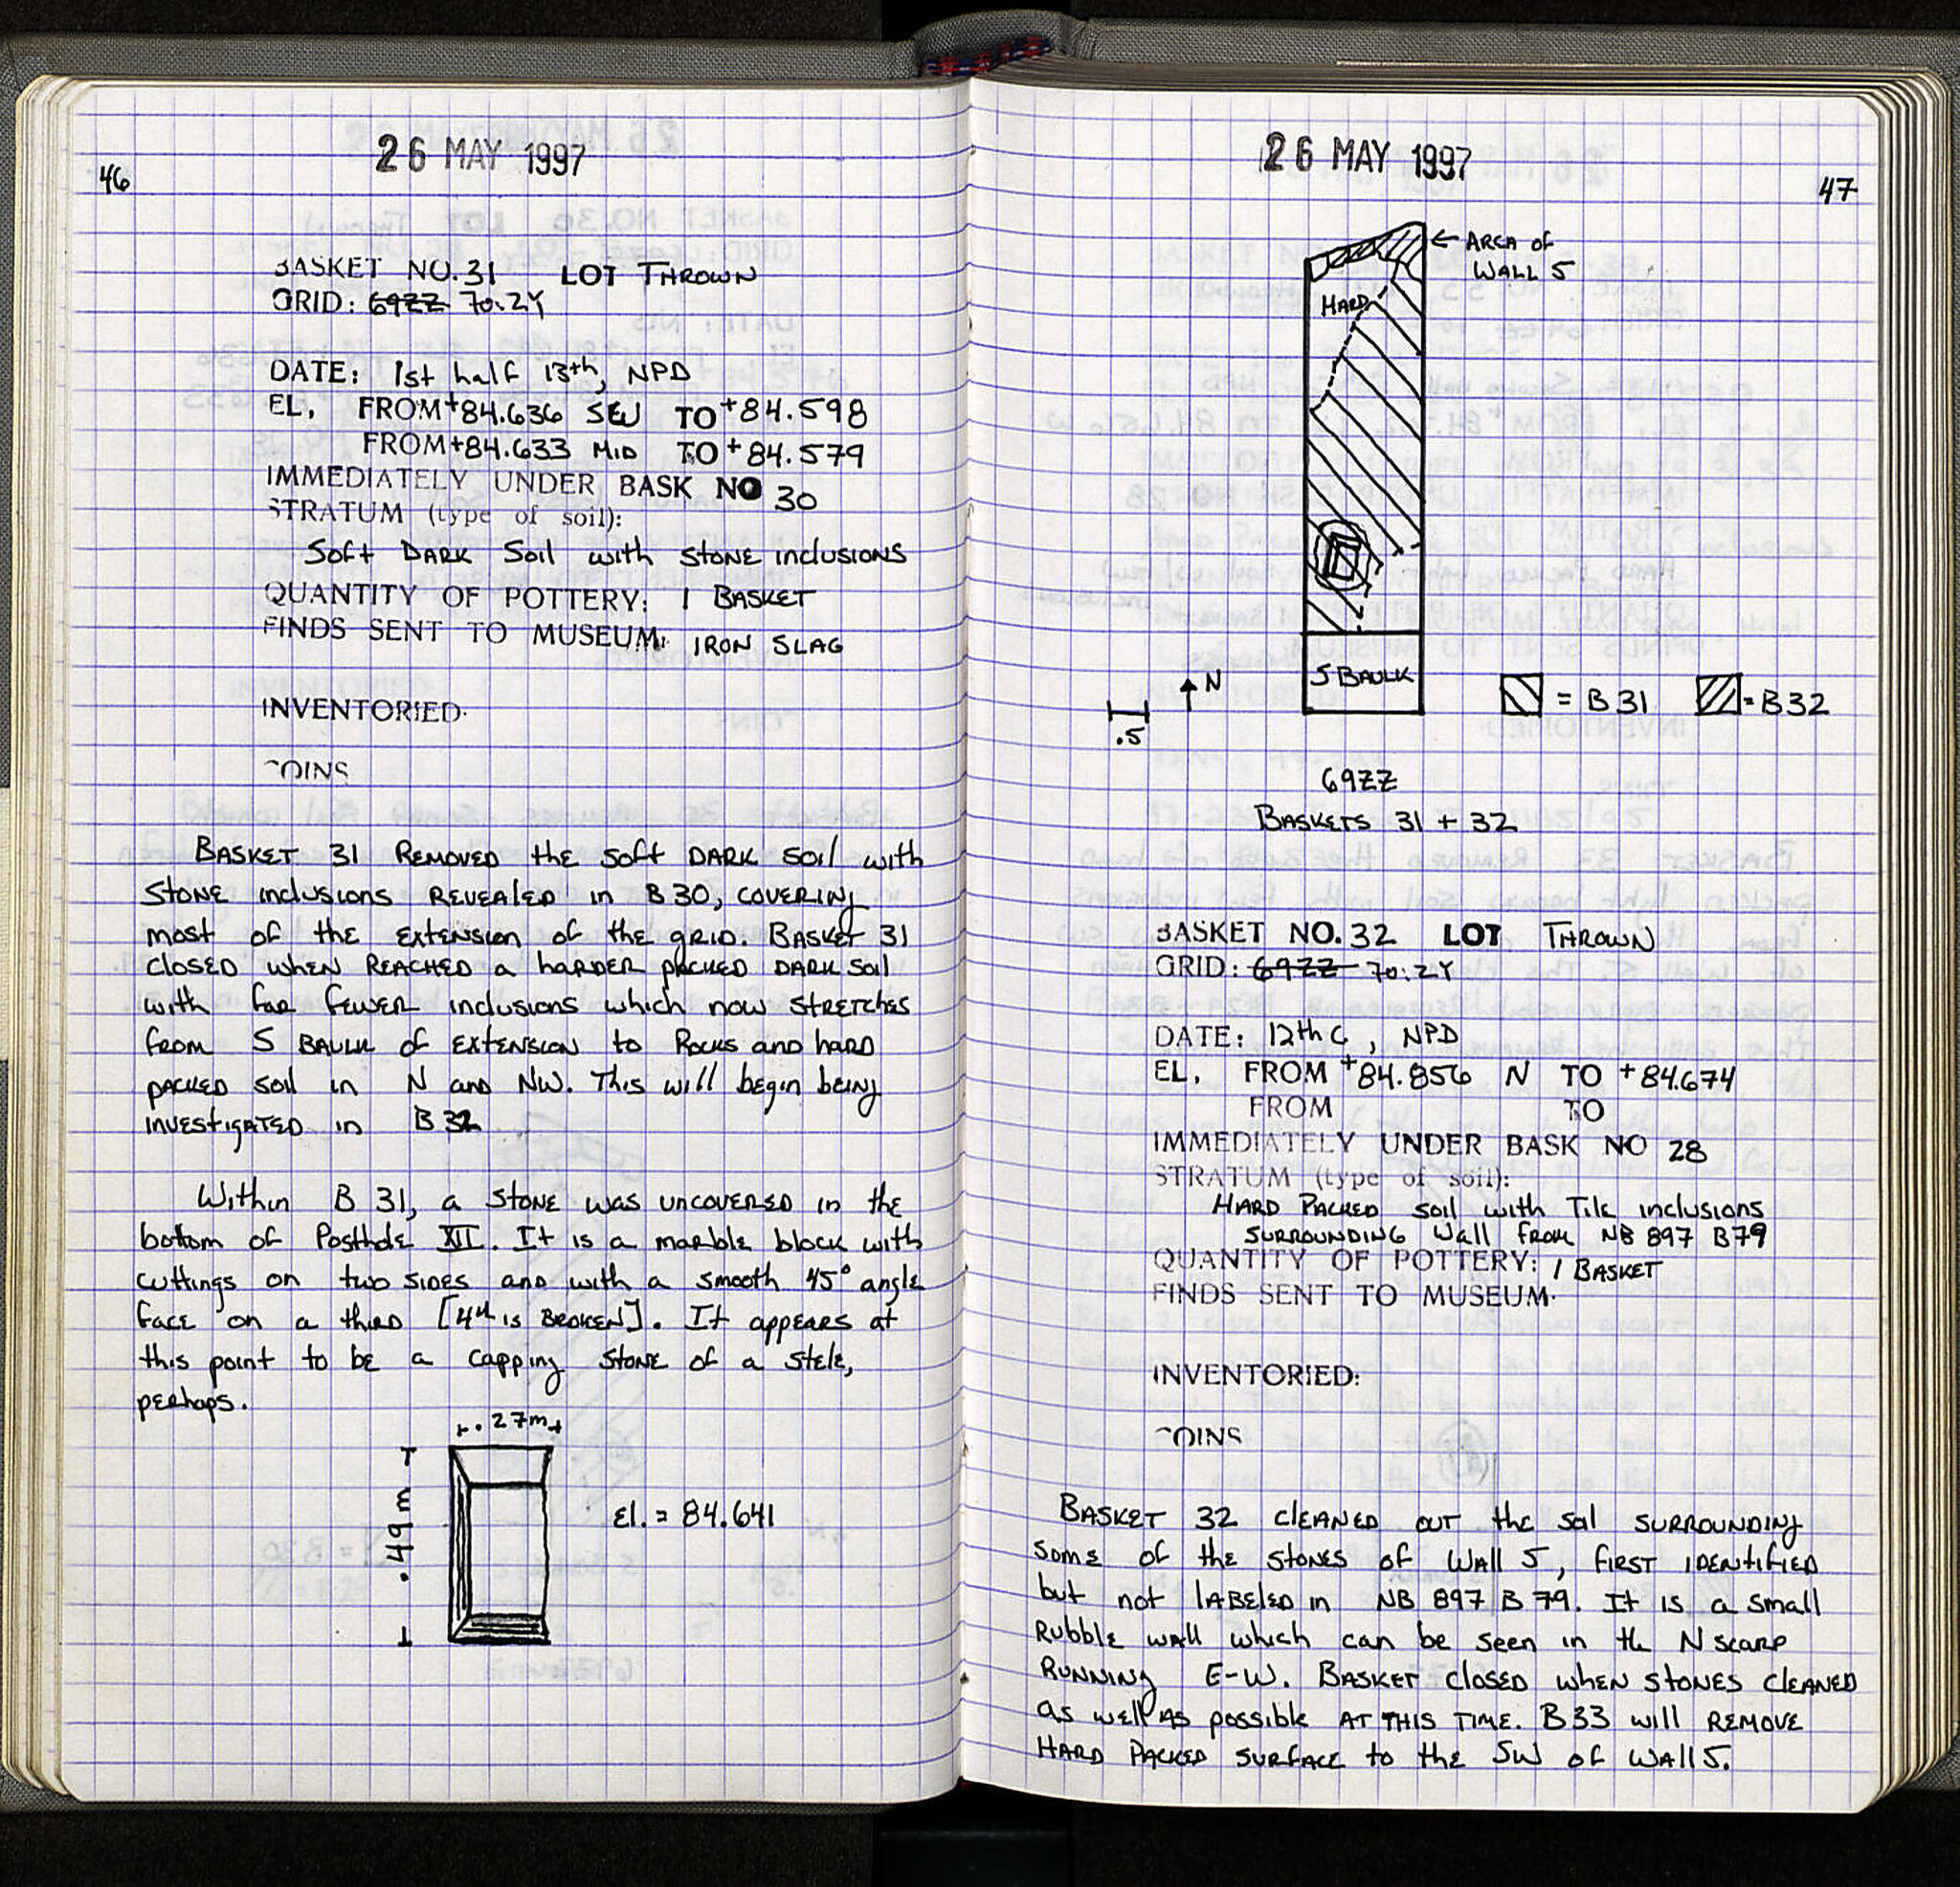 46
26 MAY 1997
BASKET NO. 31 LOT THROWN
GRID: 69ZZ 70:ZY
DATE: 1st half 13th, NPD
EL. FROM +84.636 SW TO +84.598
FROM +84.633 MID TO +84.579
IMMEDIATELY UNDER BASK NO 30
STRATUM (type of soil):
Soft DARK Soil with STONE inclusions
QUANTITY OF POTTERY: 1 BASKET
FINDS SENT TO MUSEUM: IRON SLAG
INVENTORIED:
COINS
BASKET 31 REMOVED the soft DARK soil with
STONE inclusions REVEALED in B30, COVERING
most of the EXTENSION of the grid. BASKET 31
CLOSED when REACHED a harder packed DARK soil
with far fewer inclusions which now STRETCHES
from S BAULK of EXTENSION to Rocks and hard
packed soil in N and NW. This will begin being
investigated in B 32
Within B 31, a stone was uncovered in the
bottom of Posthole XII. It is a marble block with
cuttings on two sides and with a smooth 45° angle
face on a third [4th is BROKEN]. It appears at
this point to be a capping STONE of a stele,
perhaps.
.27m
.49m
El. = 84.641
26 MAY 1997
47
← AREA of
WALL 5
HARD
S BAULK
N
.5
= B31
= B32
69ZZ
BASKETS 31 + 32
BASKET NO. 32 LOT THROWN
GRID: 69ZZ 70:ZY
DATE: 12th C, NPD
EL. FROM +84.856 N TO +84.674
FROM TO
IMMEDIATELY UNDER BASK NO 28
STRATUM (type of soil):
HARD PACKED soil with Tile inclusions
SURROUNDING Wall from NB 897 B79
QUANTITY OF POTTERY: 1 BASKET
FINDS SENT TO MUSEUM:
INVENTORIED:
COINS
BASKET 32 cleaned out the soil SURROUNDING
some of the stones of Wall 5, first identified
but not labeled in NB 897 B 79. It is a small
Rubble wall which can be seen in the N scarp
RUNNING E-W. BASKET closed when stones cleaned
as well as possible AT THIS TIME. B33 will REMOVE
HARD PACKED SURFACE to the SW of WALL 5.